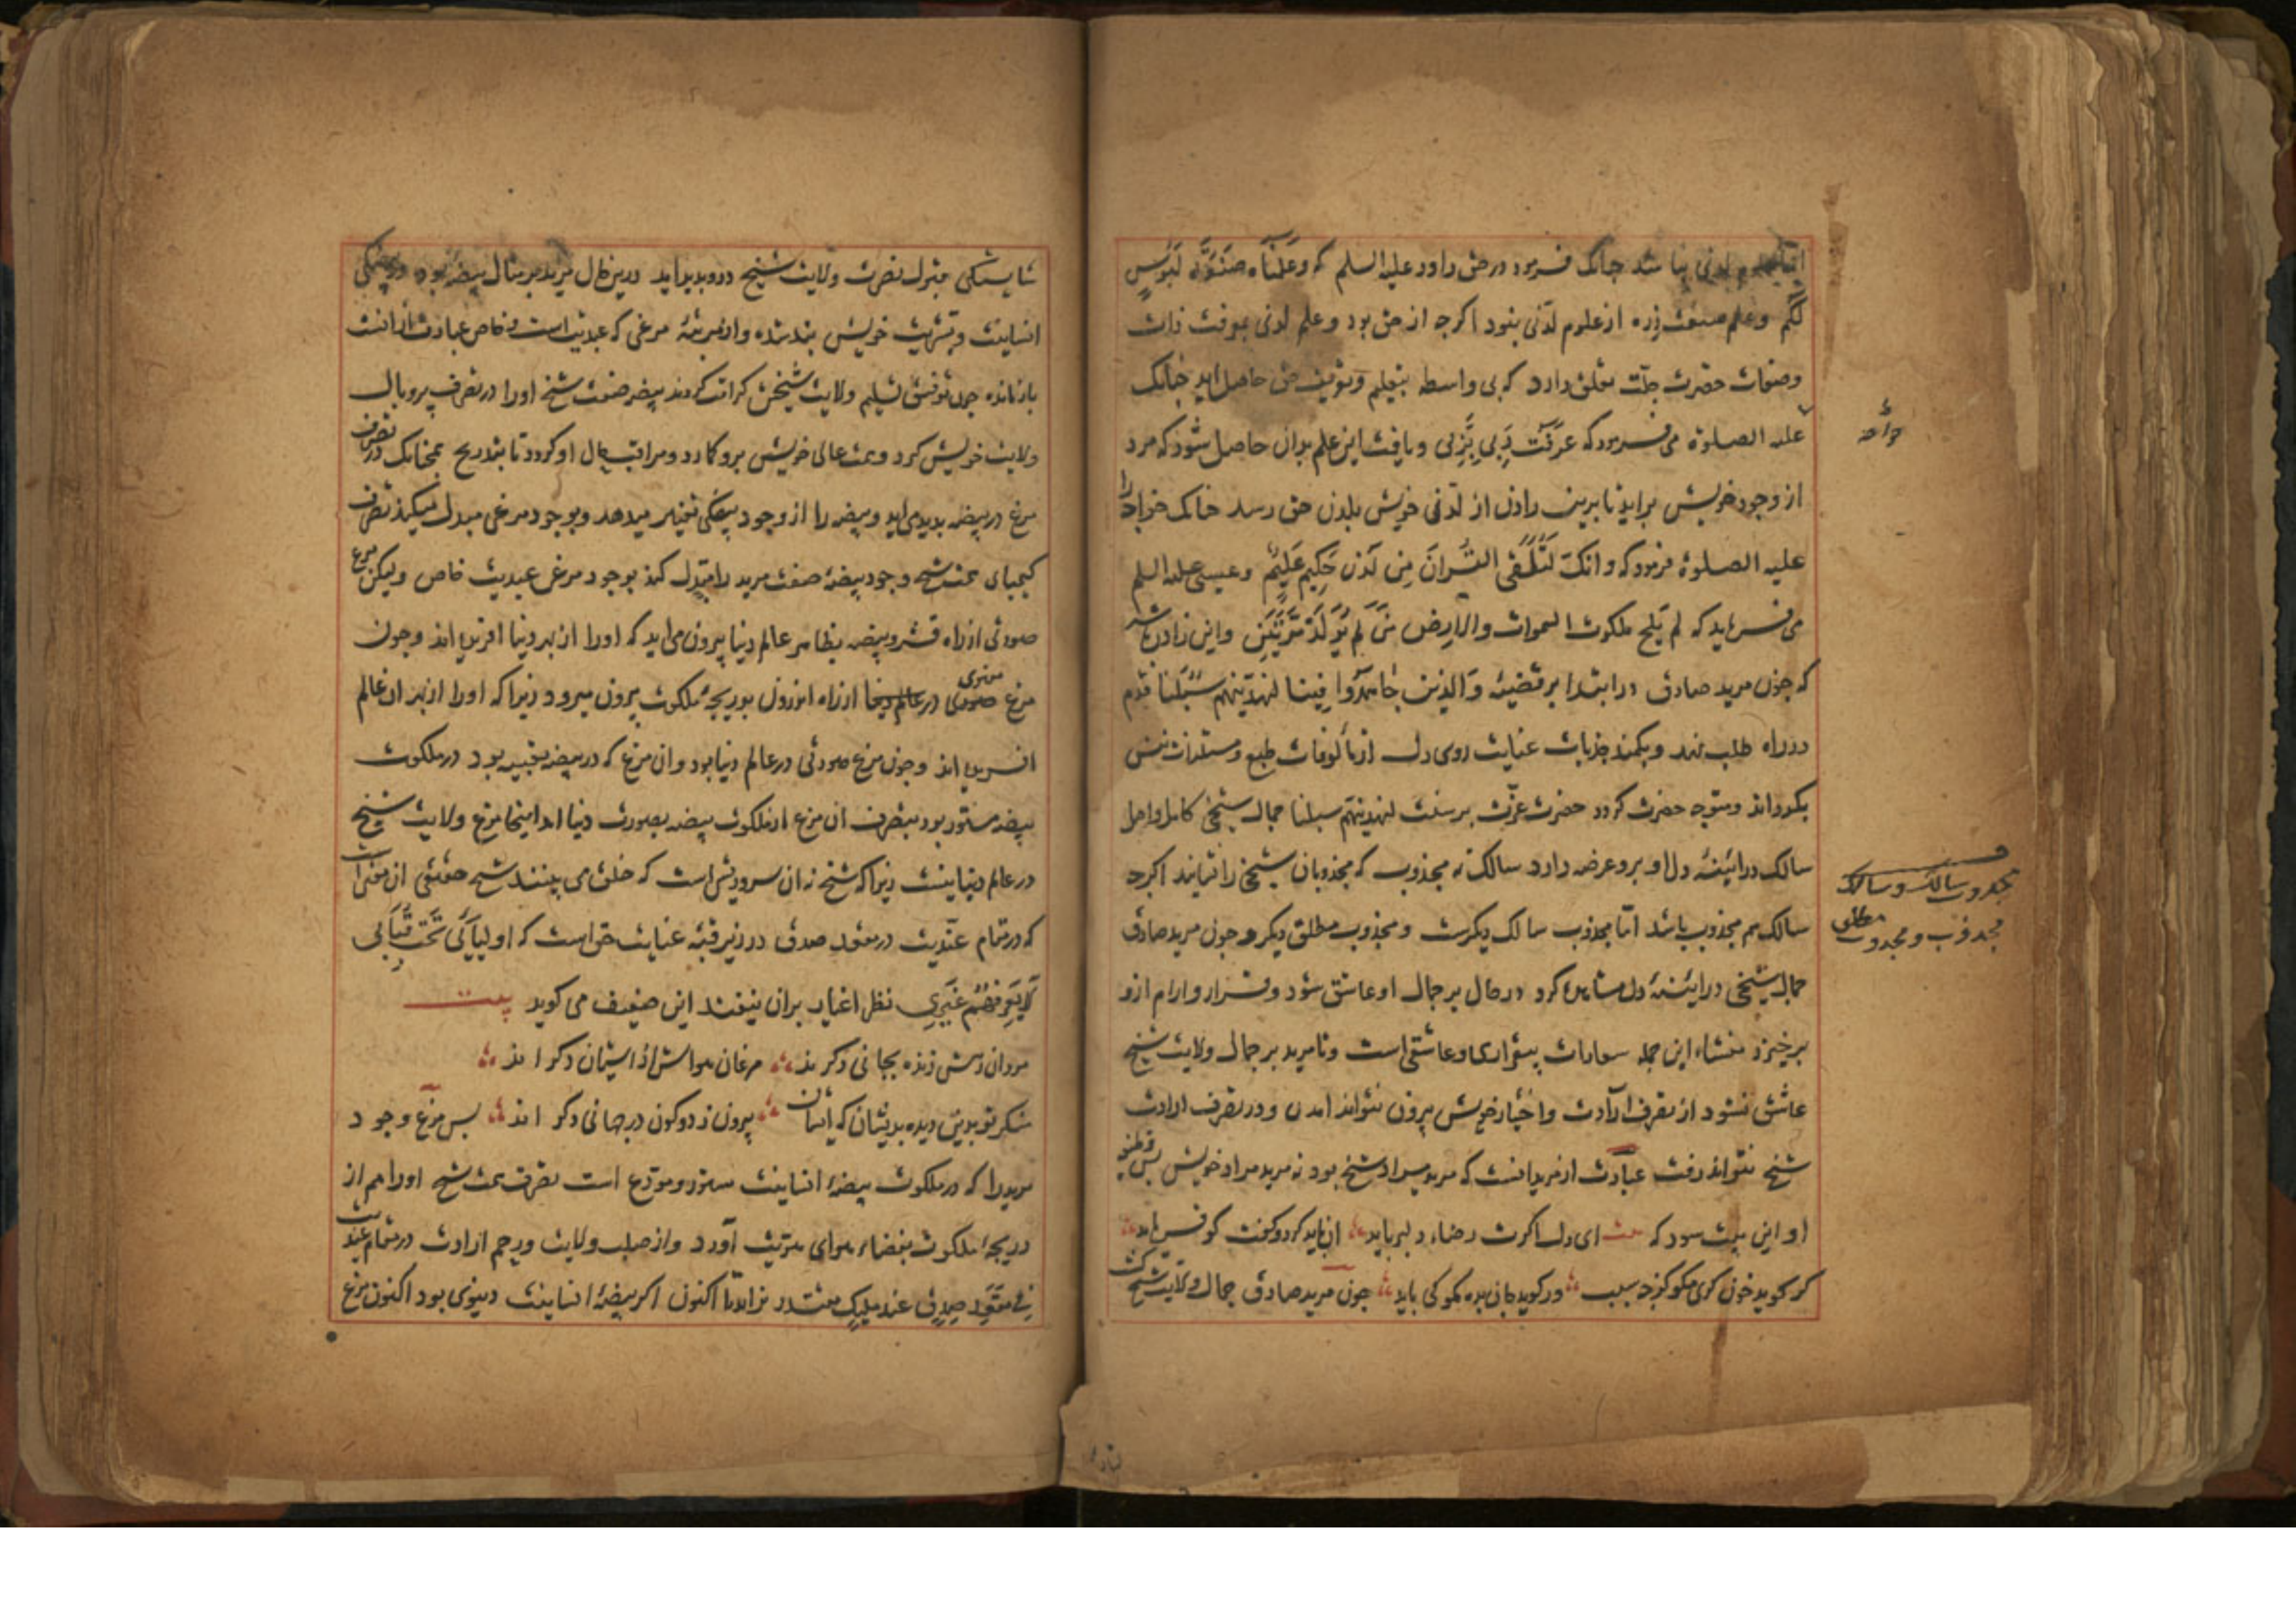 لدنی نباشد چنانک فرمود در حق داود علیه السلم که وعلمناه صنعة لبوس
لکم وعلم صنعت زره از علوم لدنی نبود اکرجه از حق بود و علم لدنی بمعرفت ذات
وصفات حضرت جلت تعلق دارد که بی واسطه بتعلیم و تعریف حق حاصل اید جنانک
علیه الصلوة می فرمود که عرفت ربی بربی و یافت این علم بدان حاصل شود که مرد
از وجود خویش براید تا برین زادن از لدنی خویش بلدن حق رسد جنانک خواجه را
علیه الصلوة فرمود که وانک لتلقی القران من لدن حکیم علیم و عیسی علیه السلم
می فرماید که لم یلج ملکوت السموات والارض من لم یولد مرتین و این زادن
که جون مرید صادق در ابتدا بر قضیه والذین جاهدوا فینا لنهدینهم سبلنا قدم
در راه طلب نهد و بکمند جذبات عنایت روی دل از مألوفات طبع و مستلذات نفس
بکرداند و متوجه حضرت کردد حضرت عزت بر سنت لنهدینهم سبلنا جمال شیخی کامل واصل
سالک در ائینه دل او برو عرضه دارد سالک نه مجذوب که مجذوبان شیخی را نشایند اکرجه
سالک هم مجذوب باشد اما مجذوب سالک دیکرست و مجذوب مطلق دیکر و جون مرید صادق
جمال شیخی در ائینه دل مشاهده کرد در حال بر جمال او عاشق شود و قرار و ارام ازو
برخیزد منشاء این جمله سعادات بیقراری و عاشقی است و تا مرید بر جمال ولایت شیخ
عاشق نشود از تصرف ارادت و اختیار خویش بیرون نتواند امدن و در تصرف ارادت
شیخ نتواند رفت عبارت از مرید انست که مرید مراد شیخ بود نه مرید مراد خویش بس
او این بیت بود که بیت ای دل اکرت رضاء دلبر باید ان باید کرد و کفت کو فرماید
کر کوید خون کری مکو کز جه سبب ور کوید جان بده مکو کی باید جون مرید صادق جمال ولایت شیخ
مجذوب سالک و سالک
مجذوب و مجذوب مطلق
شایستکی قبول تصرف ولایت شیخ درو بدید اید درین حال مرید بر مثال بیضه بود در
انسانیت و بشریت خویش بند شده و از مرتبه مرغی که عبدیت است و خاص عبارت از انست
باز مانده جون توفیق تسلیم ولایت شیخش کرامت کردند بیضه صفت شیخ او را در تصرف بر و بال
ولایت خویش کرد و همت عالی خویش برو کمارد و مراقب حال او کردد تا بتدریج همجنانک تصرف
مرغ در بیضه بدید می اید و بیضه را از وجود بیضکی تغییر میدهد و بوجود مرغی مبدل میکند تصرف
کیمیای همت شیخ وجود بیضه صفت مرید را مبدل کند بوجود مرغی عبدیت خاص ولیکن مرغ
صورتی از راه قشر و بیضه بظاهر عالم دنیا بیرون می اید که او را از بهر دنیا افریده اند و جون
مرغ معنوی از راه اندرون بدریجه ملکوت بیرون میرود زیرا که او را از بهر ان عالم
افریده اند و جون مرغ صورتی در عالم دنیا بود و ان مرغ که در بیضه تعبیه بود در ملکوت
بیضه مستور بود بتصرف ان مرغ از ملکوت بیضه بصورت دنیا امد اینجا مرغ ولایت شیخ
در عالم دنیا نیست زیرا که شیخ نه ان سر و ریش است که خلق می بینند شیخ حقیقی ان معنی است
که در مقام عندیت در مقعد صدق در زیر قبه عنایت حق است که اولیائی تحت قبابی
لا یعرفهم غیری نظر اغیار بران نیفتد این ضعیف می کوید بیت
مردان رهش زنده بجانی دکرند مرغان هواش ز اشیان دکر اند
منکر تو بدین دیده بدیشان که ایشان بیرون ز دو کون در جهانی دکر اند بس مرغ وجود
مرید را که در ملکوت بیضه انسانیت مستور و مودع است تصرف همت شیخ او را هم از
دریجه ملکوت بفضاء هوای هویت آورد و از صلب ولایت و رحم ارادت در مقام عندیت
فی مقعد صدق عند ملیک مقتدر بزاید تا اکنون اکر بیضه انسانیت دنیوی بود اکنون مرغ